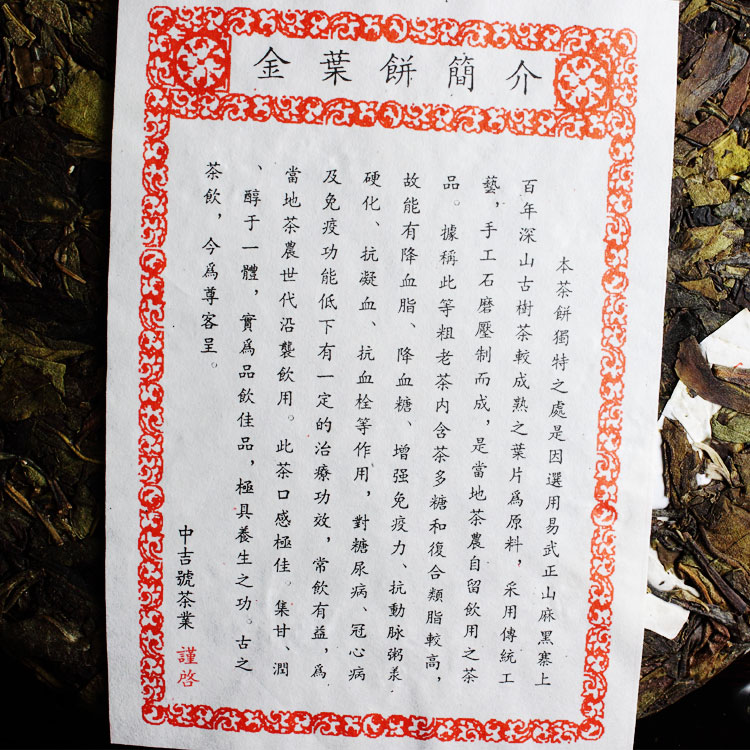 金葉餅簡介
本茶餅獨特之處是因選用易武正山麻黑寨上
百年深山古樹茶較成熟之葉片爲原料，采用傳統工
藝，手工石磨壓制而成，是當地茶農自留飲用之茶
品。據稱此等粗老茶内含茶多糖和復合類脂較高，
故能有降血脂、降血糖、增强免疫力、抗動脉粥羕
硬化、抗凝血、抗血栓等作用，對糖尿病、冠心病
及免疫功能低下有一定的治療功效，常飲有益，爲
當地茶農世代沿襲飲用。此茶口感極佳。集甘、潤
、醇于一體，實爲品飲佳品，極具養生之功。古之
茶飲，今爲尊客呈。
中吉號茶業 謹啓